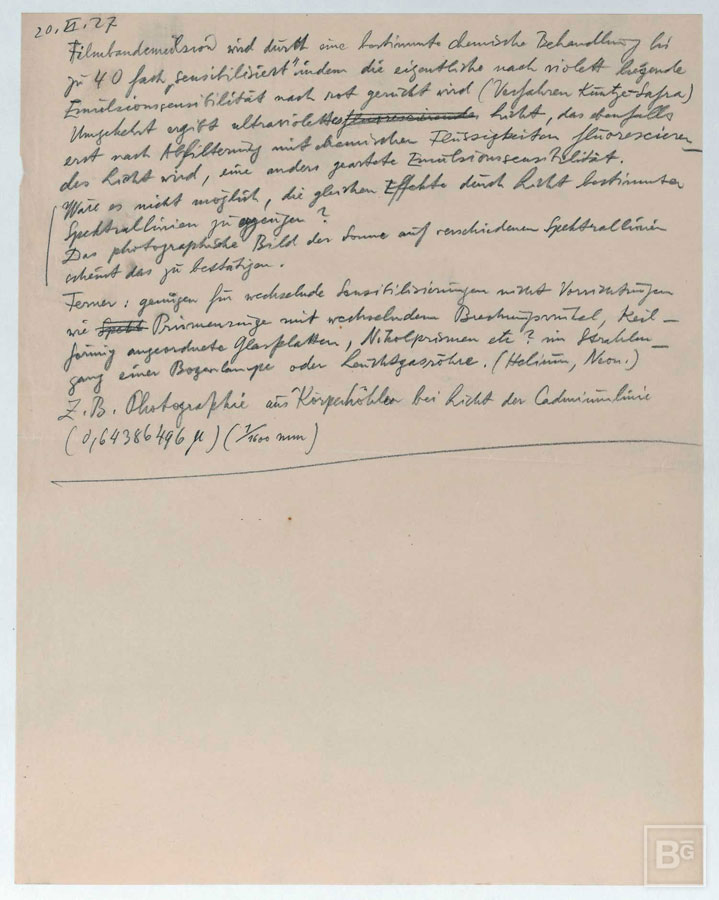 20.VI.27
Filmbandemulsion wird durch eine bestimmte chemische Behandlung bis
zu 40 fach „sensibilisiert" indem die eigentliche nach violett liegende
Emulsionssensibilität nach rot gerückt wird (Verfahren Kuntze-Safra)
Umgekehrt ergibt ultraviolettes fluorescierende Licht, das ebenfalls
erst nach Abfilterung mit chemischen Flüssigkeiten fluorescieren_
des Licht wird, eine anders geartete Emulsionssensibilität.
Wäre es nicht möglich, die gleichen Effekte durch Licht bestimmter
Spektrallinien zu erzeugen?
Das photographische Bild der Sonne auf verschiedenen Spektrallinien
scheint das zu bestätigen.
Ferner: genügen für wechselnde Sensibilisierungen nicht Vorrichtungen
wie Prismenzüge mit wechselndem Brechungswinkel, Keil–
förmig angeordnete Glasplatten, Nikolprismen etc? im Strahlen_
gang einer Bogenlampe oder Leuchtgasröhre. (Helium, Neon.)
Z.B. Photographie aus Körperhöhlen bei Licht der Cadmiumlinie
(0,64386496 µ) (1/1600 mm)
BG